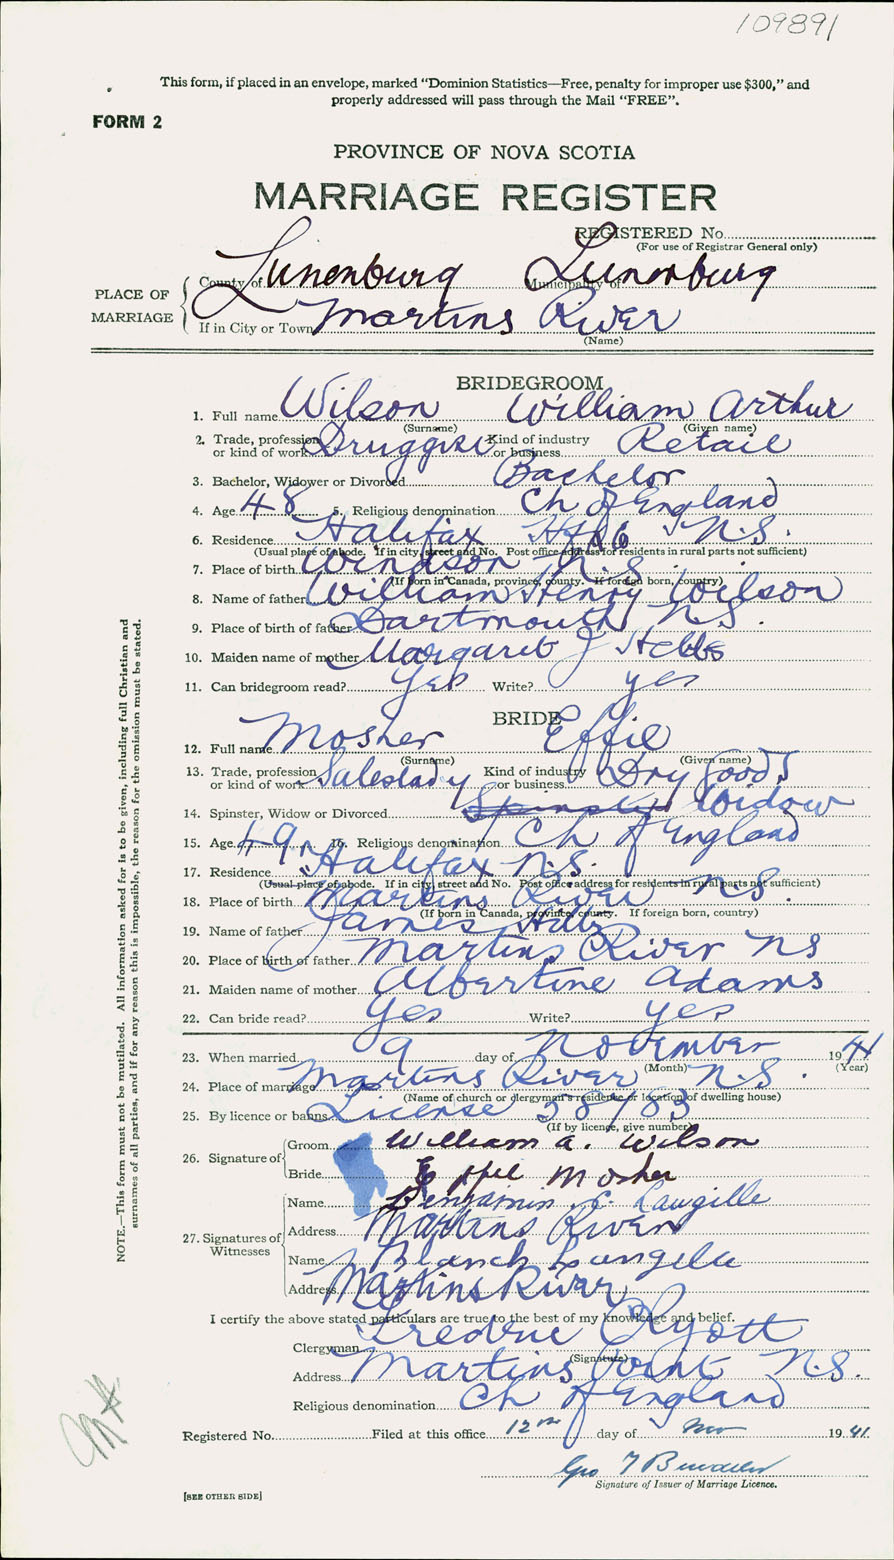 109891
This form, if placed in an envelope, marked "Dominion Statistics—Free, penalty for improper use $300," and
properly addressed will pass through the Mail "FREE".
FORM 2
PROVINCE OF NOVA SCOTIA
MARRIAGE REGISTER
REGISTERED No.
(For use of Registrar General only)
PLACE OF MARRIAGE
County of Lunenburg Municipality of Lunenburg
If in City or Town Martins River
(Name)
BRIDEGROOM
1. Full name Wilson William Arthur
(Surname) (Given name)
2. Trade, profession or kind of work Druggist Kind of industry or business Retail
3. Bachelor, Widower or Divorced Bachelor
4. Age 48 5. Religious denomination Ch of England
6. Residence Halifax N.S.
(Usual place of abode. If in city, street and No. Post office address for residents in rural parts not sufficient)
7. Place of birth Windson N.S.
(If born in Canada, province, county. If foreign born, country)
8. Name of father William Henry Wilson
9. Place of birth of father Dartmouth N.S.
10. Maiden name of mother Margaret J Hebbs
11. Can bridegroom read? Yes Write? yes
BRIDE
12. Full name Mosher Effie
(Surname) (Given name)
13. Trade, profession or kind of work Saleslady Kind of industry or business Dry Goods
14. Spinster, Widow or Divorced Spinster Widow
15. Age 49 16. Religious denomination Ch of England
17. Residence Halifax N.S.
(Usual place of abode. If in city, street and No. Post office address for residents in rural parts not sufficient)
18. Place of birth Martins River N.S.
(If born in Canada, province, county. If foreign born, country)
19. Name of father James
20. Place of birth of father Martins River NS
21. Maiden name of mother Albertine Adams
22. Can bride read? Yes Write? yes
23. When married 9 day of November 1941
(Month) (Year)
24. Place of marriage Martins River N.S.
(Name of church or clergyman's residence or location of dwelling house)
25. By licence or banns License 58783
(If by licence, give number)
26. Signature of
Groom William A. Wilson
Bride Effie Mosher
27. Signatures of Witnesses
Name Benjamin C. Langille
Address Martins River
Name Blanch Langille
Address Martins River
I certify the above stated particulars are true to the best of my knowledge and belief.
Clergyman Fredric Ryott
(Signature)
Address Martins Point N.S.
Religious denomination Ch of England
Registered No. Filed at this office 12th day of Nov 1941.
Geo T
Signature of Issuer of Marriage Licence.
[SEE OTHER SIDE]
NOTE.—This form must not be mutilated. All information asked for is to be given, including full Christian and
surnames of all parties, and if for any reason this is impossible, the reason for the omission must be stated.